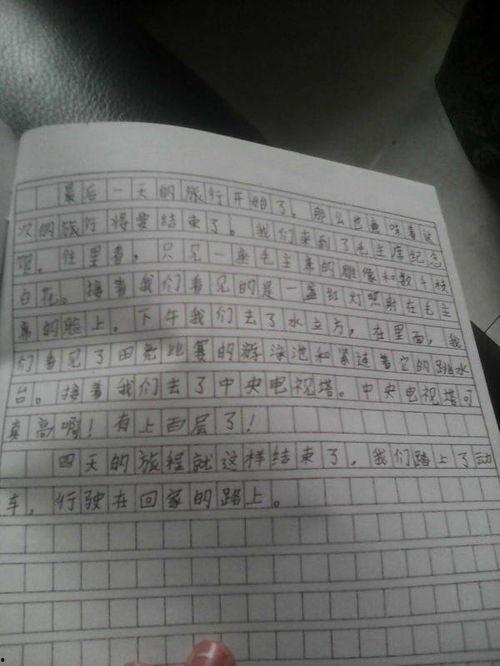 最后一天的旅行开始了。那么也意味着这
次的旅行将要结束了。我们来到了毛主席纪念
馆。往里看，只见一座毛主席的雕像和数千枝
白花。接着我们看见的是一盏红灯照射在毛主
席的脸上。下午我们去了水立方，在里面，我
们看见了田比赛的游泳池和紧连着它的跳水
台。接着我们去了中央电视塔。中央电视塔可
真高啊！有上百层了！
四天的旅程就这样结束了，我们踏上了动
车，行驶在回家的路上。